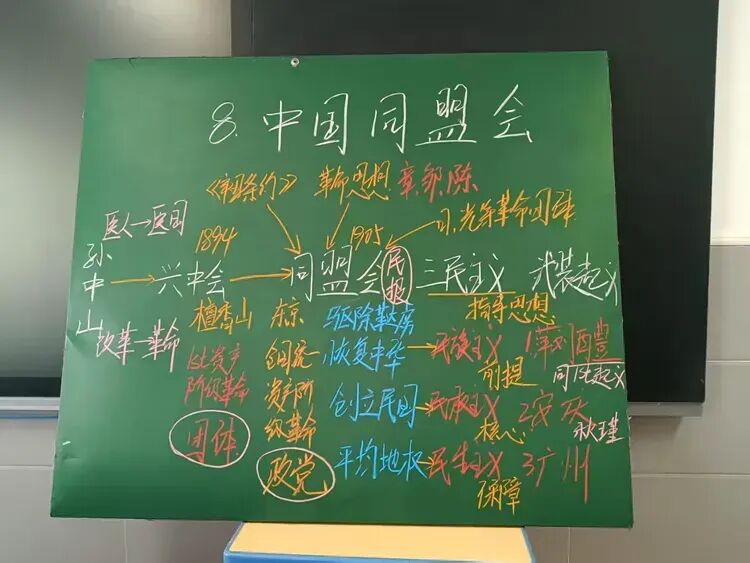 8.中国同盟会
《辛丑条约》 革命思想 章邹陈
医人→医国
1894
1905
兴、光等革命团体
孙中山→兴中会→同盟会 民报 三民主义 武装起义
檀香山 东京 驱除鞑虏 指导思想
改革→革命
1st资产阶级革命
团体
全国统一
资产阶级革命
政党
恢复中华→民族主义 1.萍浏醴
前提 同1st起义
创立民国→民权主义 2.安庆
核心 秋瑾
平均地权→民生主义 3.广州
保障